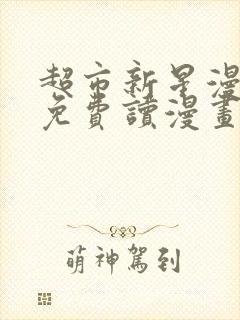 超市新星漫
免費讀漫畫
萌神駕到